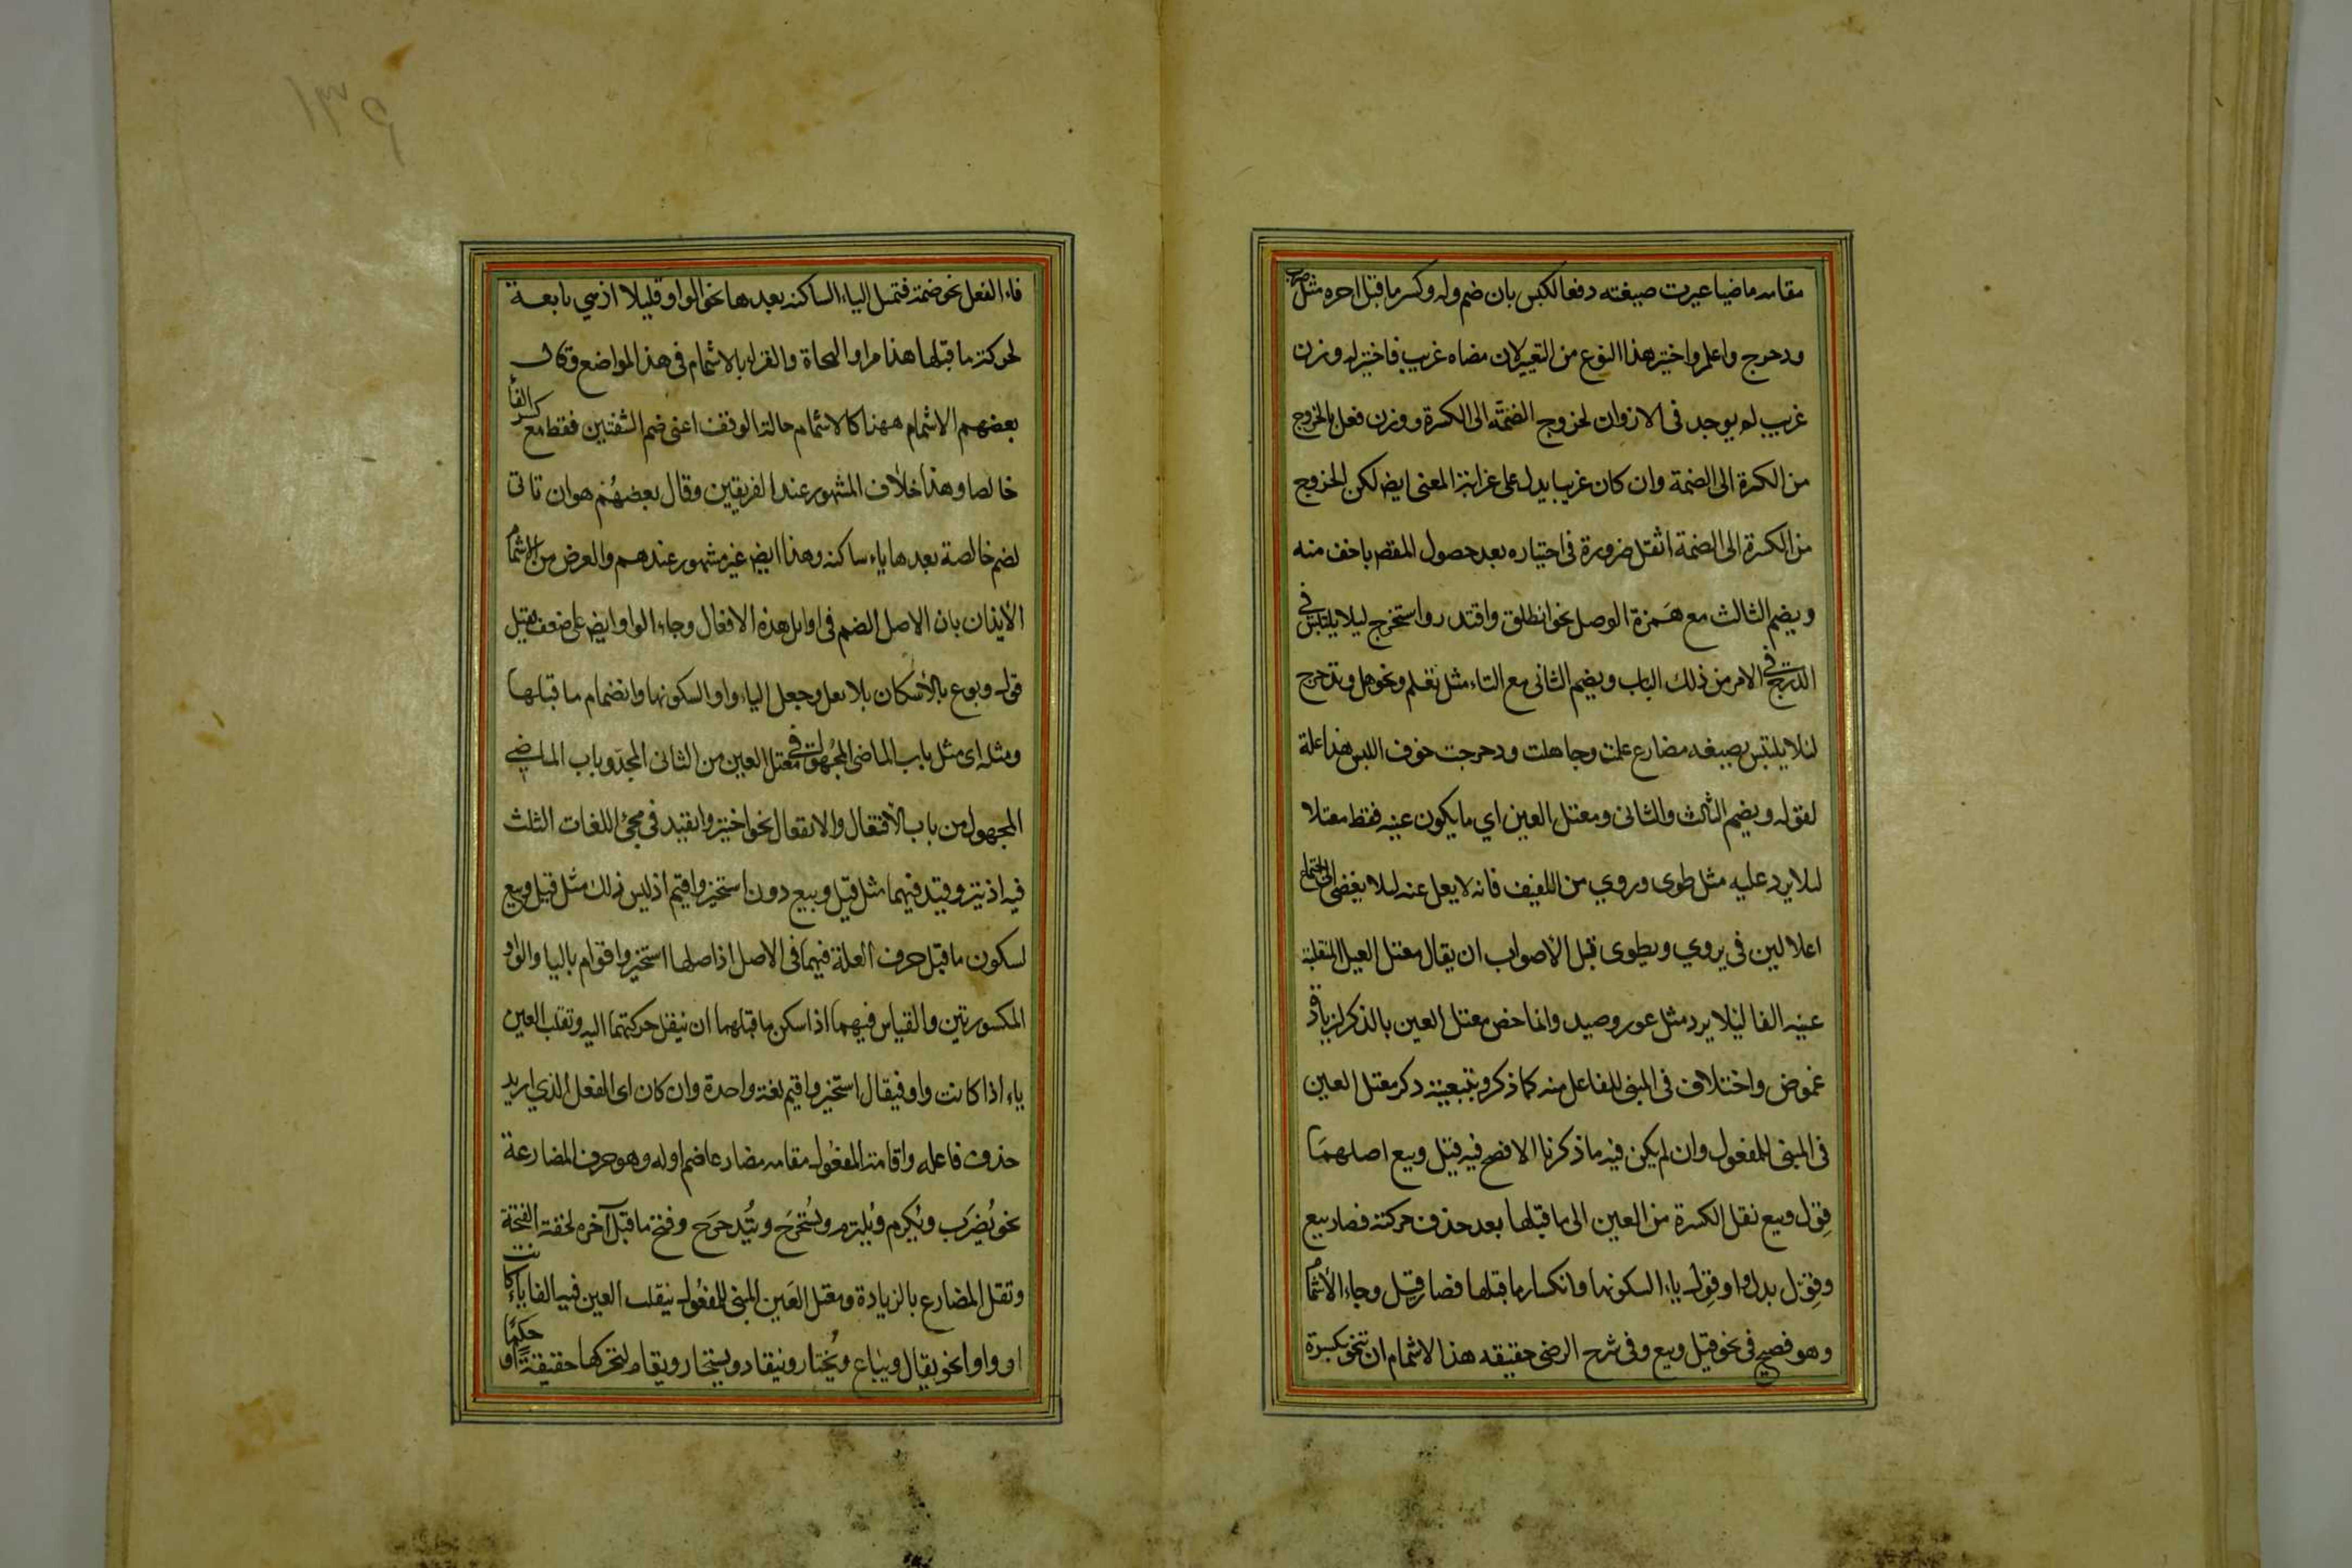 مقامه ماضيا غيرت صيغته دفعا للبس بان ضم اوله وكسر ما قبل اخره مثل ضرب
ودحرج واعلم واختير هذا النوع من التغيير لان معناه غريب فاختير له وزن
غريب لم يوجد فى الاوزان لخروج الضمة الى الكسرة ووزن فعل بالخروج
من الكسرة الى الضمة وان كان غريبا يدل على غرابة المعنى ايض لكن الخروج
من الكسرة الى الضمة اثقل ضرورة فى اختياره بعد حصول المقصر باخف منه
ويضم الثالث مع همزة الوصل نحو انطلق واقتدر واستخرج ليلا يلتبس فى
الدرج فى الامر من ذلك الباب ويضم الثانى مع التاء مثل تعلم وتجوهل وتدحرج
لئلا يلتبس بصيغه مضارع علمت وجاهلت ودحرجت خوف اللبس هذا علة
لقوله ويضم الثالث والثانى ومعتل العين اي ما يكون عينه فقط معتلا
ليلا يرد عليه مثل طوى وروي من اللفيف فانه لا يعل عينه ليلا يفضى الى اجتماع
اعلالين فى يروي ويطوى قيل الاصواب ان يقال معتل العين المنقلبة
عينه الفا ليلا يرد مثل عور وصيد وانما خص معتل العين بالذكر لزيادة
غموض واختلاف فى المبنى للفاعل منه كما ذكر وبتبعيته ذكر معتل العين
فى المبنى للمفعول وان لم يكن فيه ما ذكرنا الافصح فيه قيل وبيع اصلهما
قول وبيع نقل الكسرة من العين الى ما قبلها بعد حذف حركته فصار بيع
وقول بدل واو قول ياء السكونها وانكسار ما قبلها فصار قيل وجاء الاشمام
وهو فصيح فى نحو قيل وبيع وفى شرح الرضى حقيقه هذا الاشمام ان تنحو بكسرة
فاء الفعل نحو ضمة فتميل الياء الساكنه بعدها نحو الواو قليلا اذ هي تابعة
لحركة ما قبلها هذا مراد النحاة والقراء بالاشمام فى هذا المواضع وقال
بعضهم الاشمام ههنا كالاشمام حالة الوقف اعنى ضم الشفتين فقط مع كسر الفاء
خالصا وهذا خلاف المشهور عند الفريقين وقال بعضهم هو ان تاتى
لضم خالصة بعدها ياء ساكنه وهذا ايض غير مشهور عندهم والغرض من الاشمام
الايذان بان الاصل الضم فى اوايل هذه الافعال وجاء الواو ايض على ضعف فقيل
قول وبوع بالاسكان بلا نقل وجعل الياء واوا لسكونها وانضمام ما قبلها
ومثله اى مثل باب الماضى المجهول فى معتل العين من الثانى المجرد باب الماضى
المجهول من باب الافتعال والانفعال نحو اختير وانقيد فى مجئ اللغات الثلث
فيه اذ تير وقيد فيهما مثل قيل وبيع دون استخير واقيم اذ ليس ذلك مثل قيل وبيع
لسكون ما قبل حرف العلة فيهما فى الاصل اذ اصلها استخير واقوام باليا والواو
المكسورتين والقياس فيهما اذا سكن ما قبلهما ان ينقل حركتهما اليه وتقلب العين
ياء اذا كانت واو فيقال استخير واقيم لغة واحدة وان كان اى الفعل الذي اريد
حذف فاعله واقامة المفعول مقامه مضارعا ضم اوله وهو حرف المضارعة
نحو يُضرَب ويُكرم ويُلتزم ويُستخرَج ويُتدحرَج وفتح ما قبل آخره لخفة الفتحة
وثقل المضارع بالزيادة ومعتل العين المبنى للمفعول ينقلب العين فيه الفا ياء كانت
او واوا نحو يقال ويباع ويُختار وينقاد ويستخار ويقام لتحركها حقيقة او حكما
١٣٩